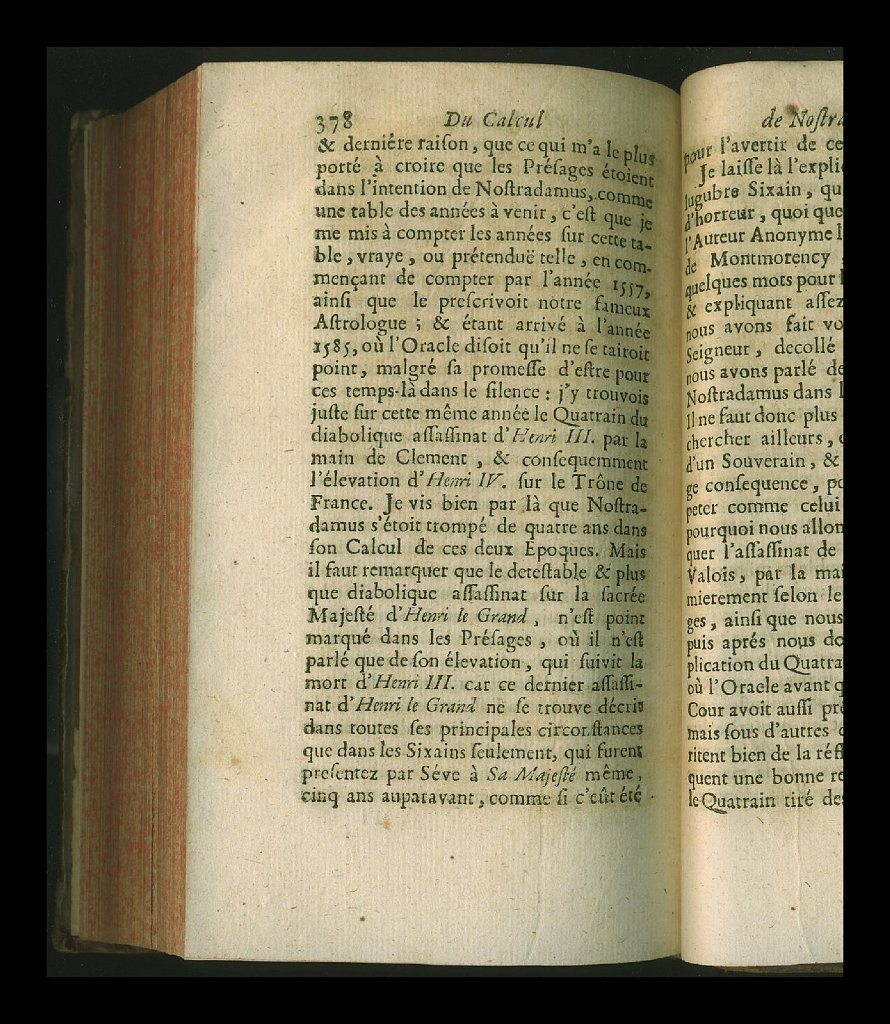 378 Du Calcul
& derniére raiſon, que ce qui m'a le plus
porté à croire que les Préſages étoient
dans l'intention de Noſtradamus, comme
une table des années à venir, c'eſt que je
me mis à compter les années ſur cette ta-
ble, vraye, ou prétenduë telle, en com-
mençant de compter par l'année 1557,
ainſi que le preſcrivoit notre fameux
Aſtrologue; & étant arrivé à l'année
1585, où l'Oracle diſoit qu'il ne ſe tairoit
point, malgré ſa promeſſe d'eſtre pour
ces temps-là dans le ſilence: j'y trouvois
juſte ſur cette même année le Quatrain du
diabolique aſſaſſinat d'Henri III. par la
main de Clement, & conſequemment
l'élevation d'Henri IV. ſur le Trône de
France. Je vis bien par là que Noſtra-
damus s'étoit trompé de quatre ans dans
ſon Calcul de ces deux Epoques. Mais
il faut remarquer que le deteſtable & plus
que diabolique aſſaſſinat ſur la ſacrée
Majeſté d'Henri le Grand, n'eſt point
marqué dans les Préſages, où il n'eſt
parlé que de ſon élevation, qui ſuivit la
mort d'Henri III. car ce dernier aſſaſſi-
nat d'Henri le Grand ne ſe trouve décrit
dans toutes ſes principales circonſtances
que dans les Sixains ſeulement, qui furent
preſentez par Séve à Sa Majeſté même,
cinq ans auparavant, comme ſi c'eût été
de Noſtra
pour l'avertir de ce
Je laiſſe là l'expli
lugubre Sixain, qu
d'horreur, quoi que
l'Auteur Anonyme l
de Montmorency
quelques mots pour
& expliquant aſſez
nous avons fait vo
Seigneur, decollé
nous avons parlé de
Noſtradamus dans l
Il ne faut donc plus
chercher ailleurs,
d'un Souverain, &
ge conſequence, po
peter comme celui
pourquoi nous allon
quer l'aſſaſſinat de
Valois, par la mai
mierement ſelon le
ges, ainſi que nous
puis aprés nous do
plication du Quatra
où l'Oracle avant q
Cour avoit auſſi pré
mais ſous d'autres
ritent bien de la réfl
quent une bonne re
le Quatrain tiré des